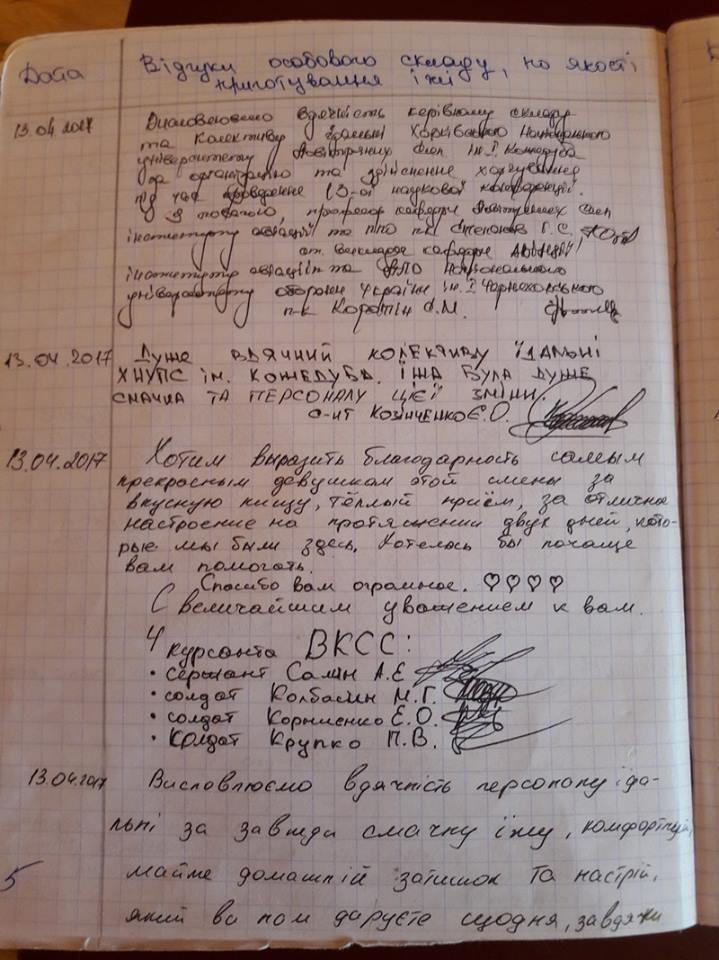 Дата
Відгуки особового складу, по якості
приготування їжі
13.04.2017
Висловлюємо вдячність керівному складу
та колективу їдальні Харківського Національного
університету Повітряних Сил ім. І. Кожедуба
за організацію та здійснення харчування
під час проведення 13-ої наукової конференції.
З повагою, професор кафедри Повітряних Сил
інституту авіації та ППО п-к Г.С.
ст. викладач кафедри авіації
інституту авіації та ППО Національного
університету оборони України ім. І. Черняховського
п-к Коротін С.М.
13.04.2017
Дуже вдячний колективу їдальні
ХНУПС ім. Кожедуба. Їжа була дуже
смачна та персоналу цієї зміни.
с-нт Козінченко Є.О.
13.04.2017
Хотим выразить благодарность самым
прекрасным девушкам этой смены за
вкусную пищу, тёплый приём, за отличное
настроение на протяжении двух дней, кото-
рые мы были здесь. Хотелось бы почаще
вам помогать.
Спасибо вам огромное. ♡♡♡♡
С величайшим уважением к вам.
4 курсанта ВКСС:
• сержант Салін А.Е
• солдат Колбасин М.Г.
• солдат Корниенко Е.О.
• солдат Крупко П.В.
13.04.2017
Висловлюємо вдячність персоналу їда-
льні за завжди смачну їжу,
майже домашній затишок та настрій,
який ви нам даруєте щодня, завдяки
5